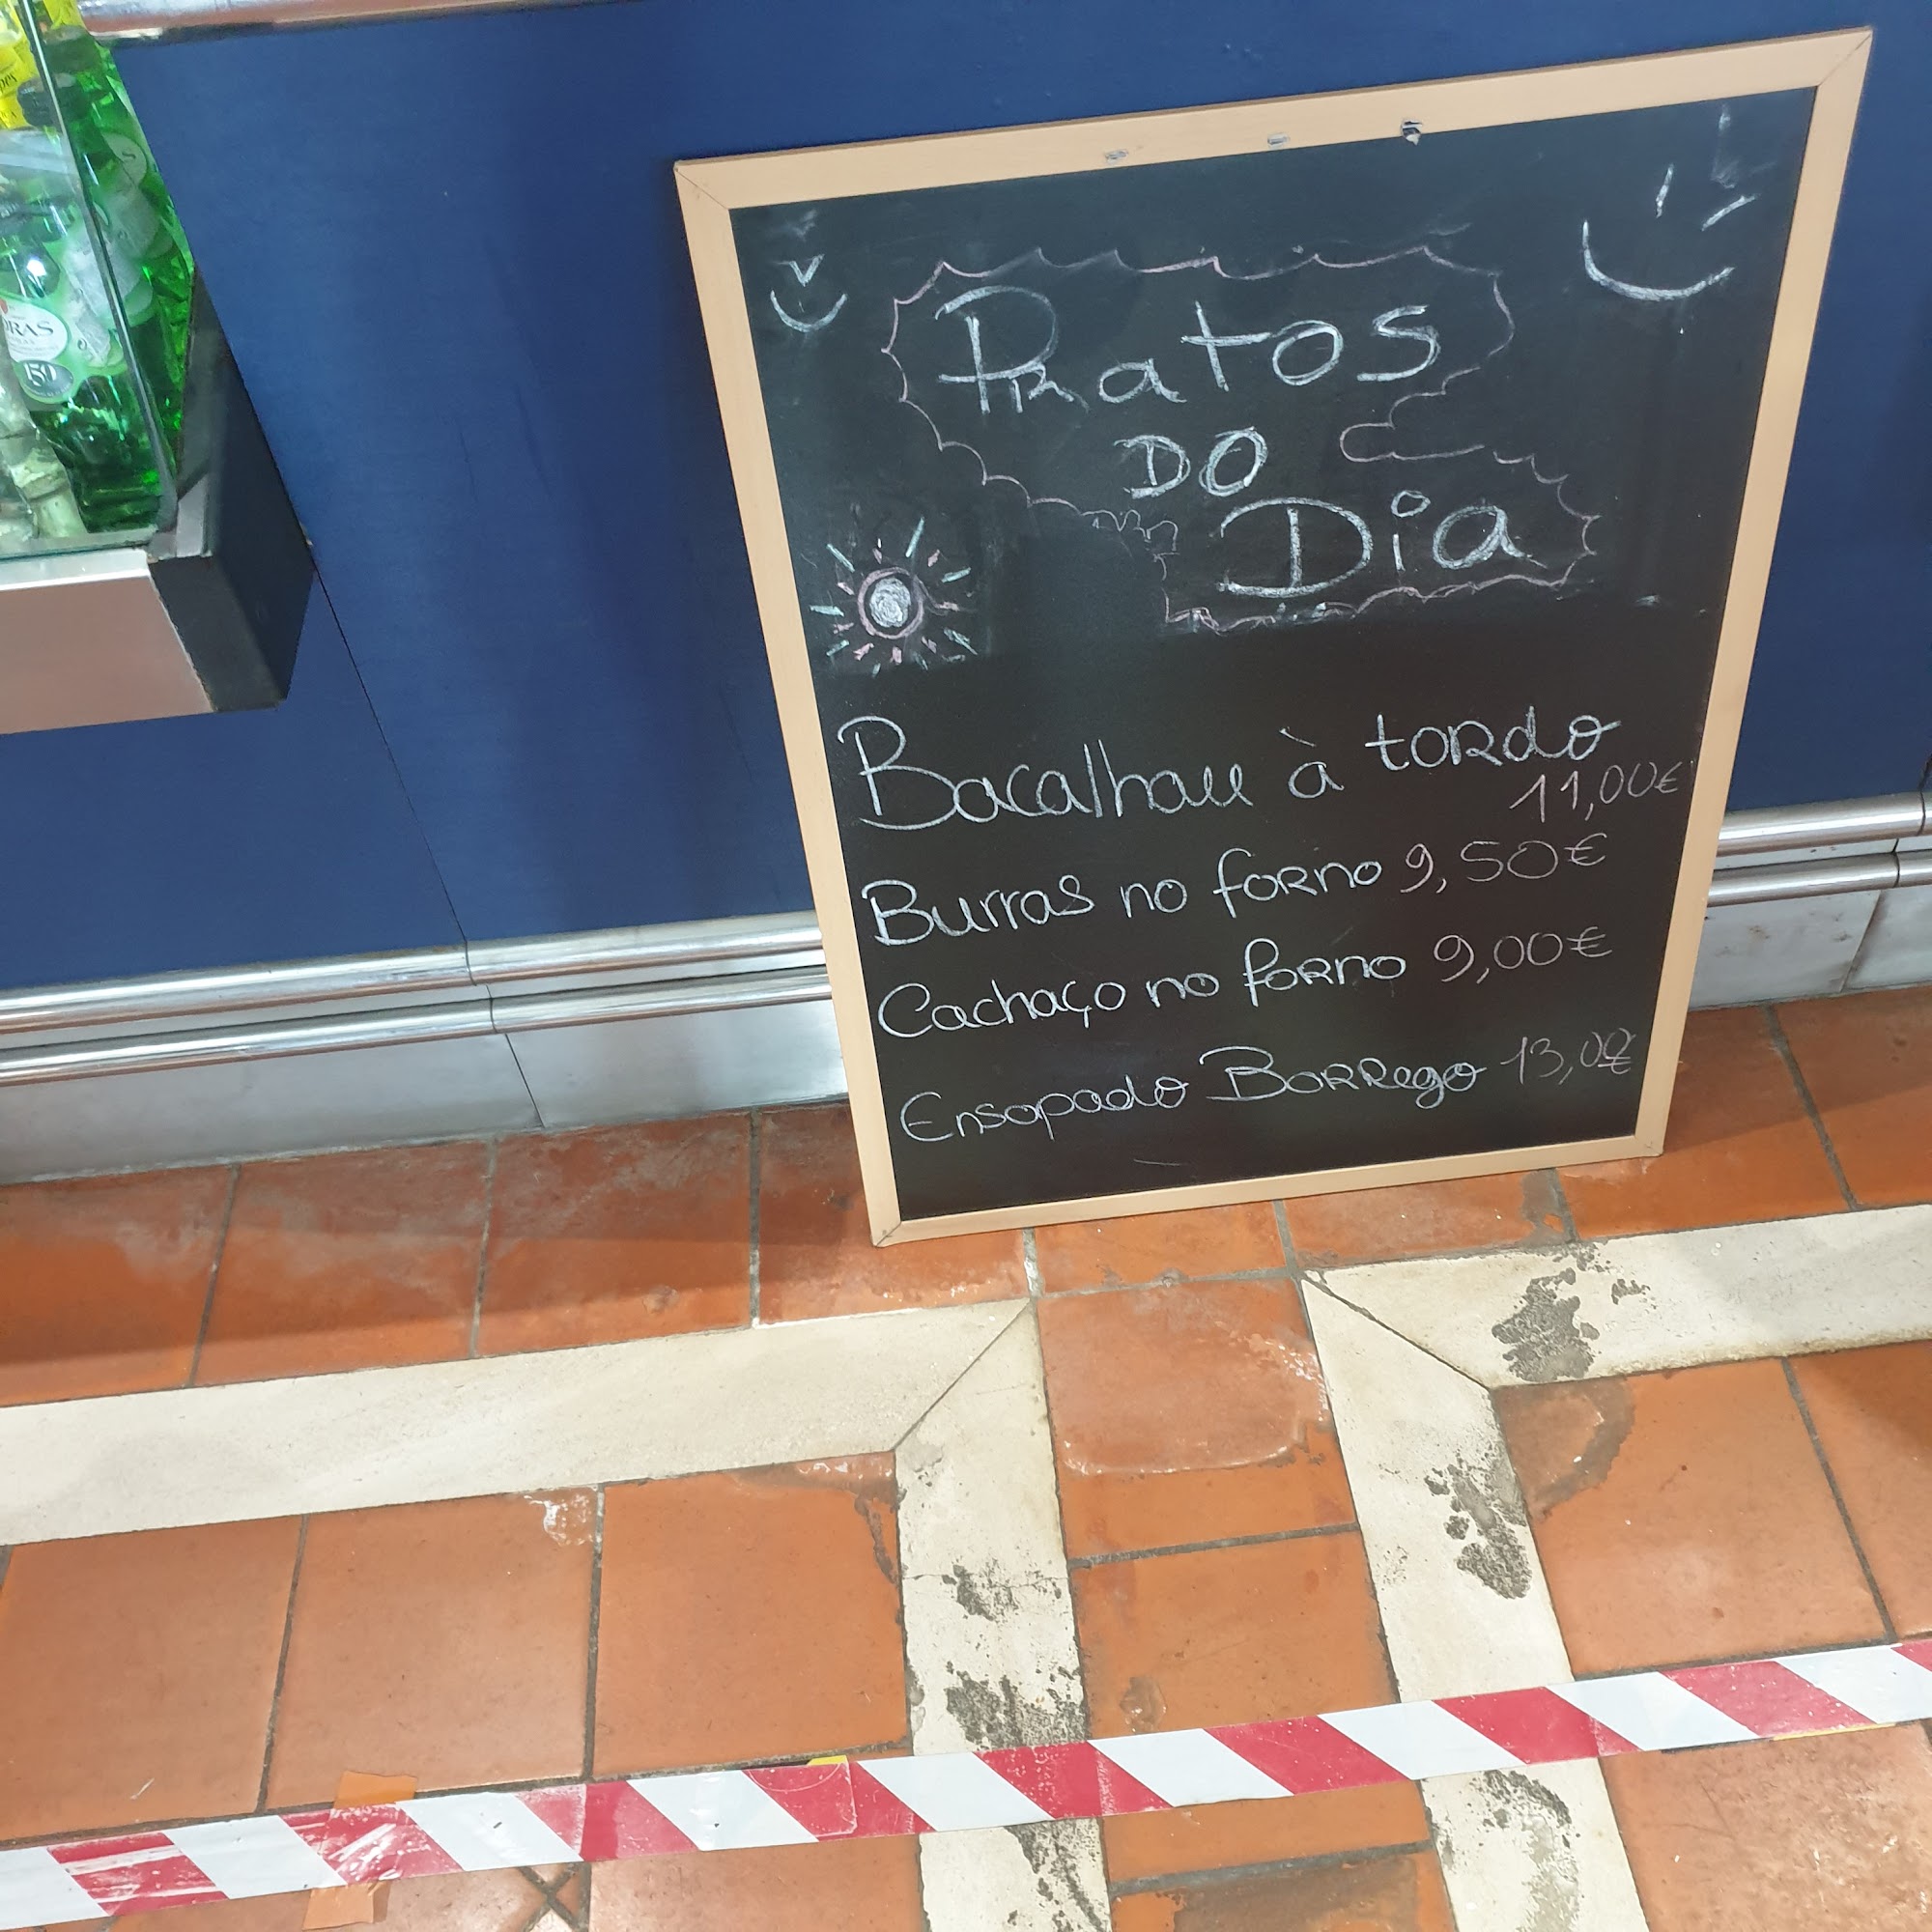 Pratos
DO
Dia
Bacalhau à tordo
11,00€
Burras no forno 9,50€
Cachaço no forno 9,00€
Ensopado Borrego 13,00€